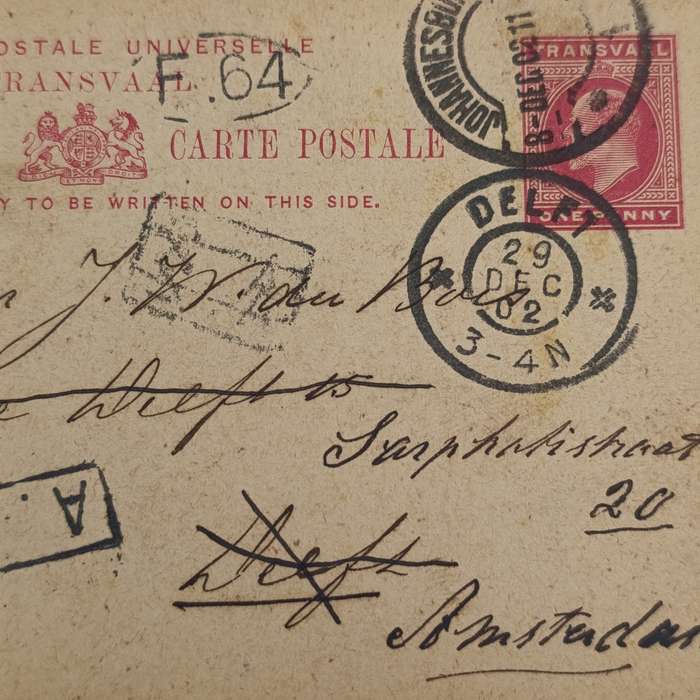 OSTALE UNIVERSELLE
RANSVAAL
F.64
CARTE POSTALE
Y TO BE WRITTEN ON THIS SIDE.
JOHANNESBU
8-DEC 02 11
TRANSVAAL
ONE PENNY
DELFT
29
DEC
02
3-4N
J. W. du Bois
Delft
Sarphatistraat
20
A.
Delft
Amsterda